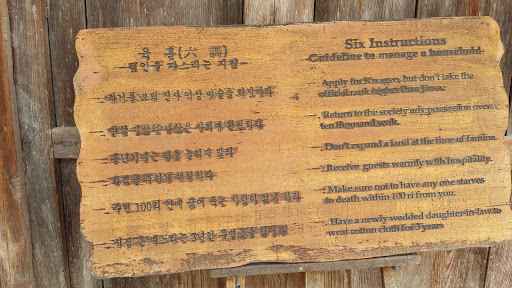 육 훈(六 訓)
집안을 다스리는 지침
과거를 보되 진사 이상 벼슬을 하지마라
만석 이상의 재산은 사회에 환원하라
흉년기에는 땅을 늘리지 말라
과객을 후하게 대접하라
주변 100리 안에 굶어 죽는 사람이 없게 하라
시집 온 며느리는 3년간 무명옷을 입어라
Six Instructions
Guideline to manage a household.
Apply for Kwageo, but don't take the
official rank higher than Jinsa.
Return to the society any possession over
ten thousand seok.
Don't expand a land at the time of famine.
Receive guests warmly with hospitality.
Make sure not to have any one starves
to death within 100 ri from you.
Have a newly wedded daughter-in-law to
wear cotton cloth for 3 years